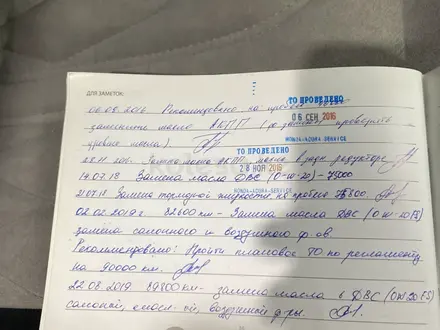 ДЛЯ ЗАМЕТОК:
ТО ПРОВЕДЕНО
06.09.2016 Рекомендовано на пробеге
06 СЕН 2016
заменить масло АКПП (до замены проверить
уровень масла)
HONDA-ACURA-SERVICE
ТО ПРОВЕДЕНО
28.11.2016. Замена масла АКПП, масла в заднем редукторе
28 НОЯ 2016
14.07.18 Замена масла ДВС (0-W-20) - 75000
HONDA-ACURA-SERVICE
21.07.18 Замена тормозной жидкости, на пробеге 75800.
08.02.2019г. 82600 км - Замена масла ДВС (0W20FS)
замена салонного и воздушного ф.ов.
Рекомендовано: Пройти плановое ТО по регламенту
на 90000 км.
22.08.2019 89800 км - замена масла в ДВС (0W20 FS)
салонный, воздушный ф-ры.